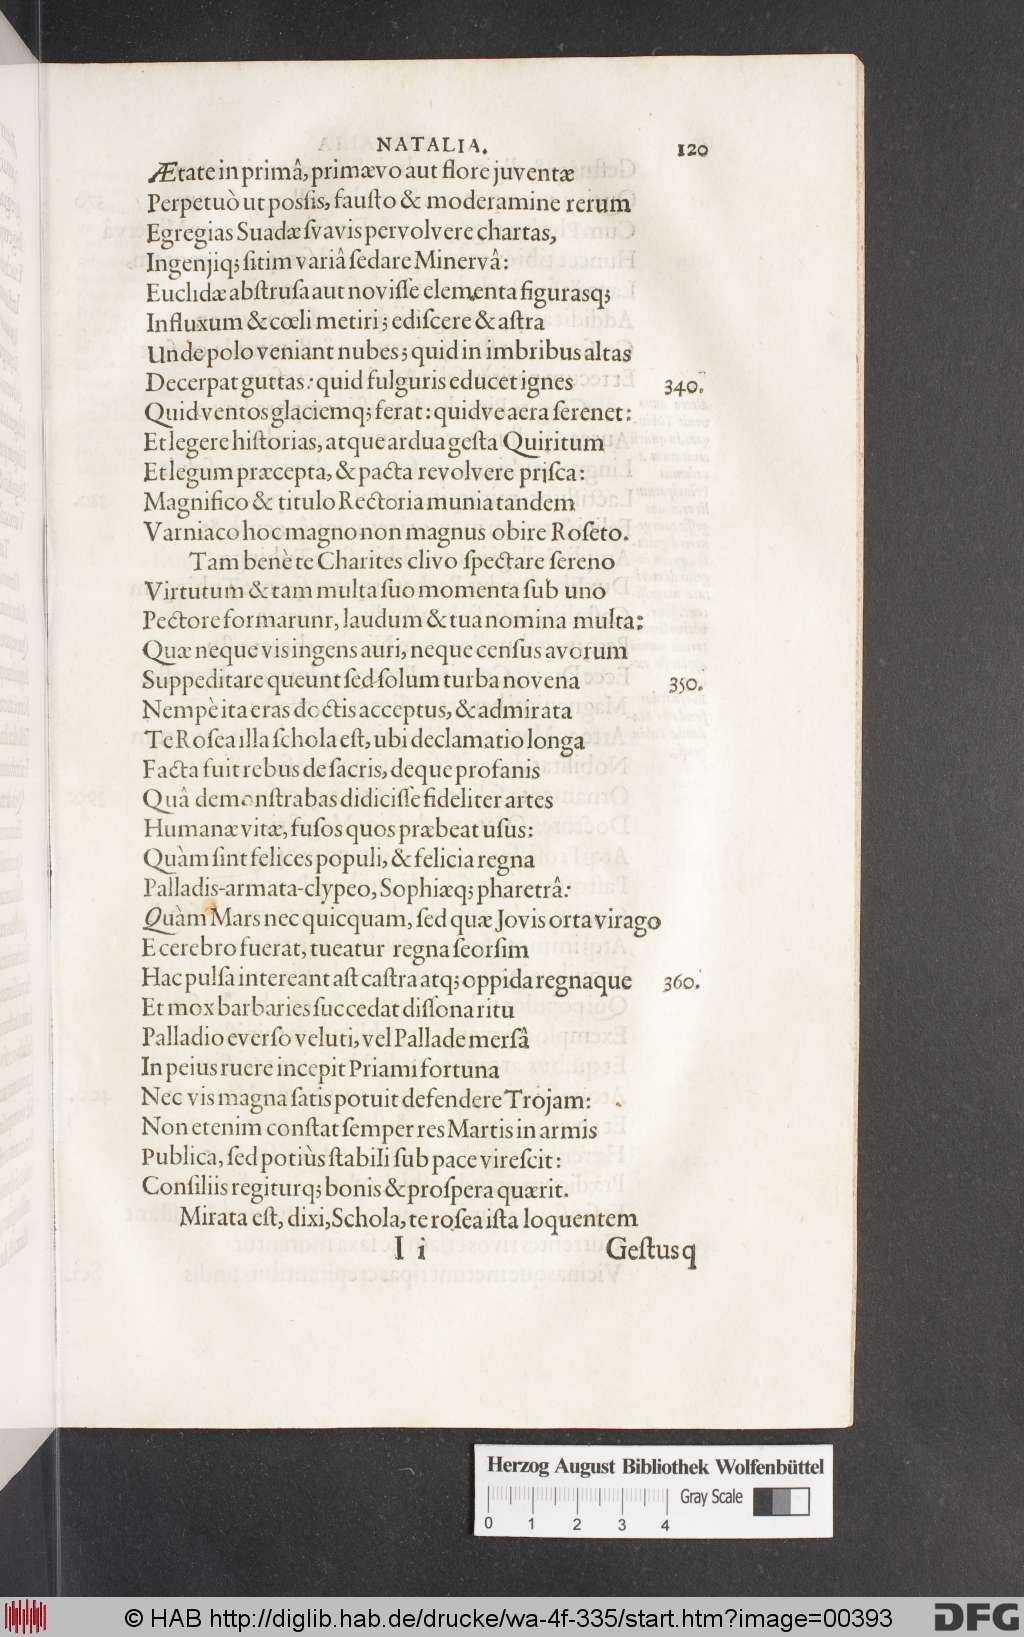 NATALIA. 120
Ætate in primâ, primævo aut flore juventæ
Perpetuò ut poſsis, fauſto & moderamine rerum
Egregias Suadæ ſvavis pervolvere chartas,
Ingenjiq; ſitim variâ ſedare Minervâ:
Euclidæ abſtruſa aut noviſſe elementa figurasq;
Influxum & cœli metiri; ediſcere & aſtra
Unde polo veniant nubes; quid in imbribus altas
Decerpat guttas: quid fulguris educet ignes 340.
Quid ventos glaciemq; ferat: quidve aera ſerenet:
Et legere hiſtorias, atque ardua geſta Quiritum
Et legum præcepta, & pacta revolvere priſca:
Magnifico & titulo Rectoria munia tandem
Varniaco hoc magno non magnus obire Roſeto.
Tam benè te Charites clivo ſpectare ſereno
Virtutum & tam multa ſuo momenta ſub uno
Pectore formarunr, laudum & tua nomina multa:
Quæ neque vis ingens auri, neque cenſus avorum
Suppeditare queunt ſed ſolum turba novena 350.
Nempè ita eras doctis acceptus, & admirata
Te Roſea illa ſchola eſt, ubi declamatio longa
Facta fuit rebus de ſacris, deque profanis
Quâ demonſtrabas didiciſſe fideliter artes
Humanæ vitæ, fuſos quos præbeat uſus:
Quàm ſint felices populi, & felicia regna
Palladis-armata-clypeo, Sophiæq; pharetrâ:
Quàm Mars nec quicquam, ſed quæ Jovis orta virago
E cerebro fuerat, tueatur regna ſeorſim
Hac pulſa intereant aſt caſtra atq; oppida regnaque 360.
Et mox barbaries ſuccedat diſſona ritu
Palladio everſo veluti, vel Pallade merſâ
In peius ruere incepit Priami fortuna
Nec vis magna ſatis potuit defendere Trojam:
Non etenim conſtat ſemper res Martis in armis
Publica, ſed potiùs ſtabili ſub pace vireſcit:
Conſiliis regiturq; bonis & proſpera quærit.
Mirata eſt, dixi, Schola, te roſea iſta loquentem
I i Geſtusq
Herzog August Bibliothek Wolfenbüttel
Gray Scale
0 1 2 3 4
© HAB http://diglib.hab.de/drucke/wa-4f-335/start.htm?image=00393 DFG